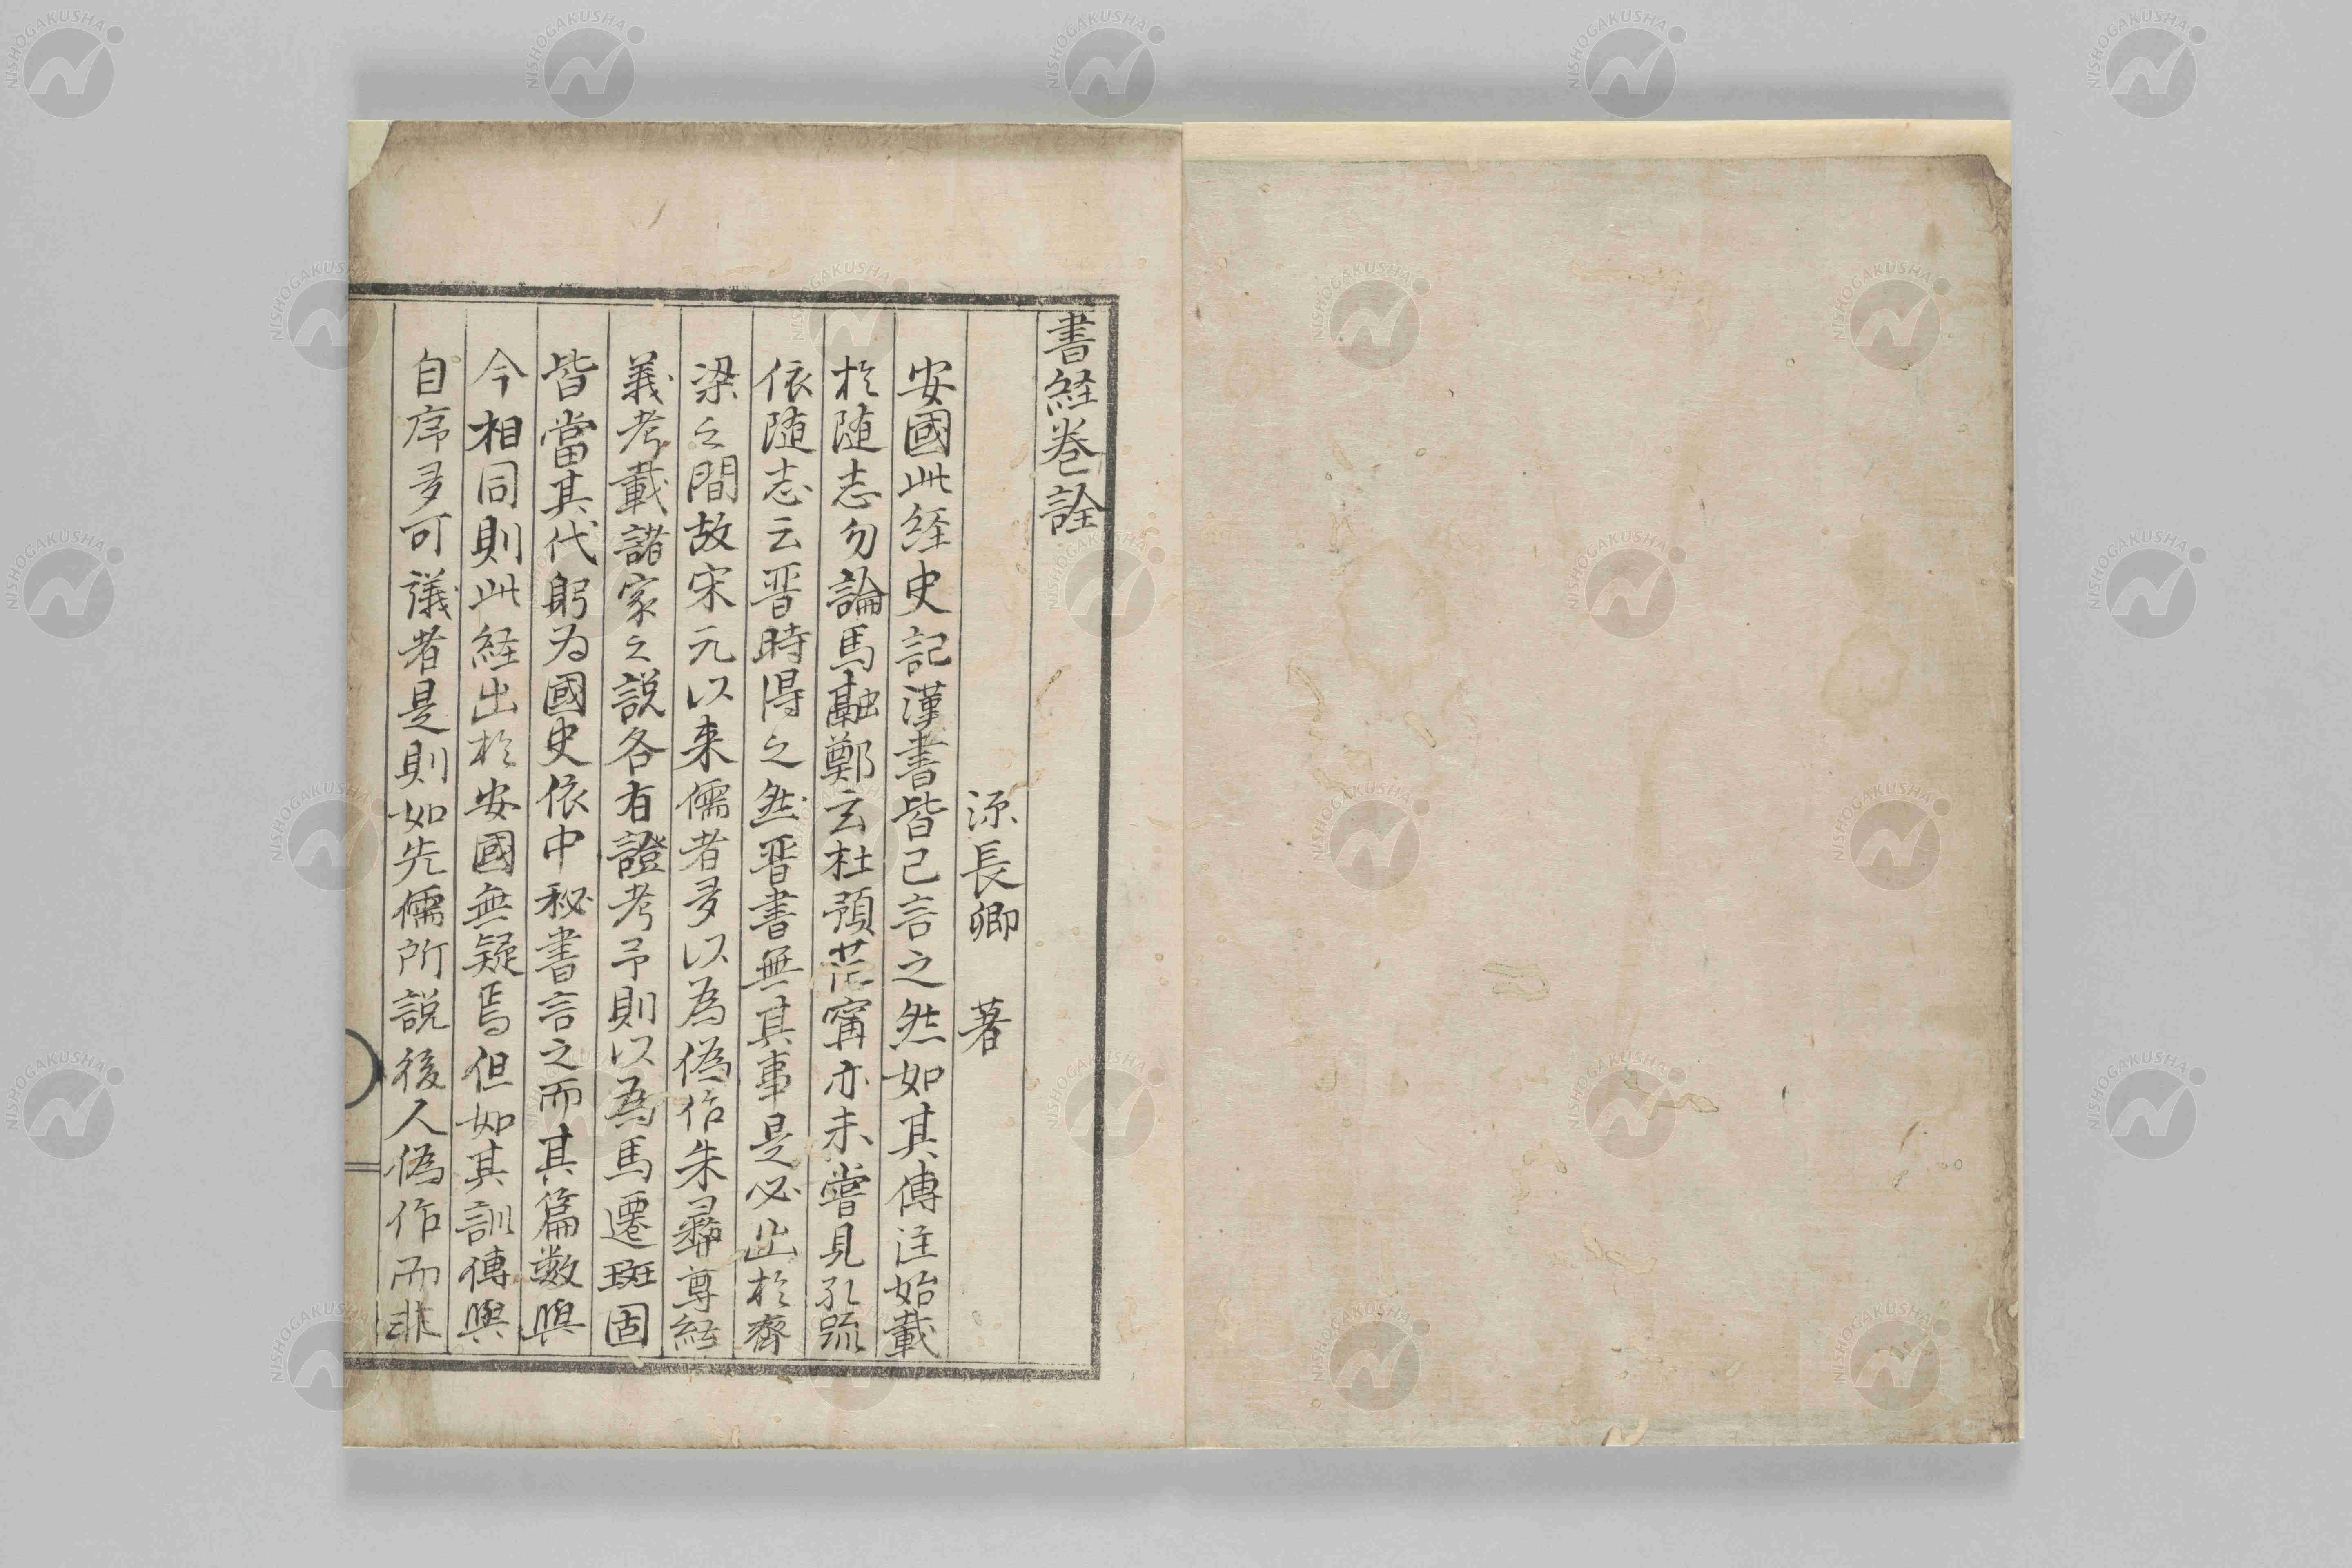 書経巻詮
源長卿　著
安國此経史記漢書皆已言之然如其傳注始載
於随志勿論馬融鄭玄杜預范甯亦未嘗見孔疏
依随志云晋時得之然晋書無其事是必出於齊
梁之間故宋元以来儒者多以為偽作朱彝尊経
義考載諸家之説各有證考予則以為馬遷班固
皆當其代躬为國史依中秘書言之而其篇数與
今相同則此経出於安國無疑焉但如其訓傳與
自序多可議者是則如先儒所説後人偽作而非